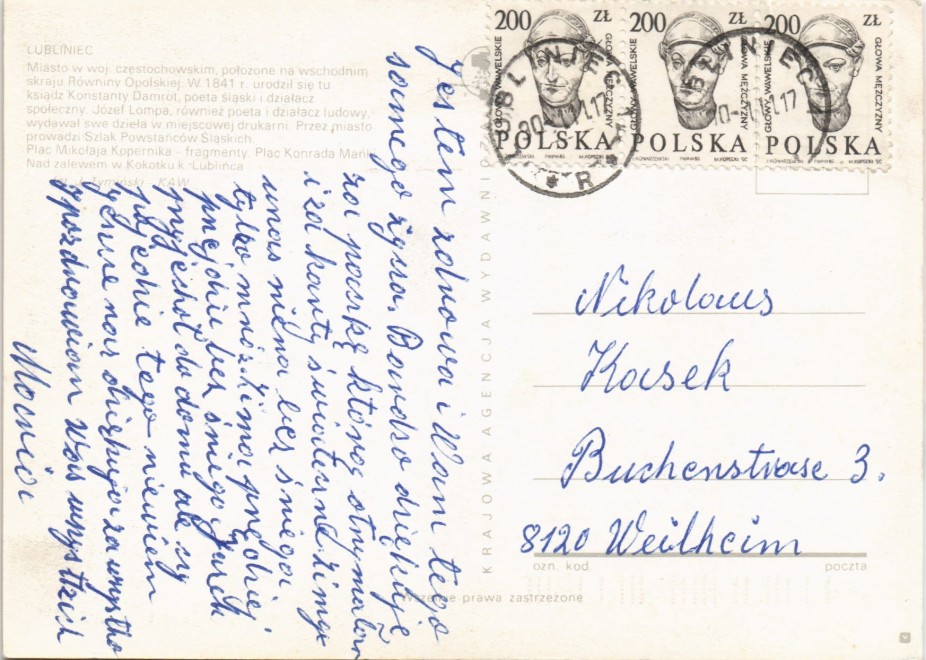 LUBLINIEC
Miasto w woj. częstochowskim, położone na wschodnim
skraju Równiny Opolskiej. W 1841 r. urodził się tu
ksiądz Konstanty Damrot, poeta śląski i działacz
społeczny. Józef Lompa, również poeta i działacz ludowy,
wydawał swe dzieła w miejscowej drukarni. Przez miasto
prowadzi Szlak Powstańców Śląskich.
Plac Mikołaja Kopernika - fragmenty. Plac Konrada Mańki
Nad zalewem w Kokotku k. Lublińca
fot. J. Tymiński - KAW
Jestem zdrowa i Wam tego
samego życzę. Bardzo dziękuję
za paczkę którą otrzymałam
i za karty świateczne. Zimy
unas nilma lecz śniega
tylko mróz. Zima prędzej
prejdzie bez śniego. Jurek
przyjechał do domu ale czy
pojedzie tego niewiem
dziękuja za wszystko
pozdrawiam Was wszystkich
Maria
KRAJOWA AGENCJA WYDAWNICZA
200 ZŁ
GŁOWY WAWELSKIE
GŁOWA MĘŻCZYZNY
POLSKA
200 ZŁ
GŁOWY WAWELSKIE
GŁOWA MĘŻCZYZNY
POLSKA
200 ZŁ
GŁOWY WAWELSKIE
GŁOWA MĘŻCZYZNY
POLSKA
LUBLINIEC
R
LUBLINIEC
Nikolaus
Kasek
Buchenstrase 3.
8120 Weilheim
ozn. kod. poczta
Wszelkie prawa zastrzeżone